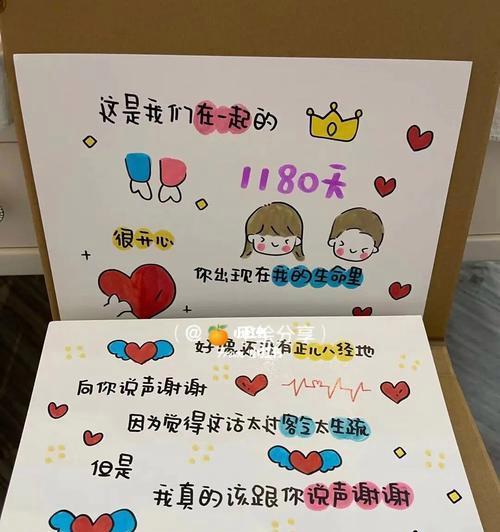 这是我们在一起的
1180天
很开心
你出现在我的生命里
好像还没有正儿八经地
向你说声谢谢
因为觉得这话太过客气太生疏
但是
我真的该跟你说声谢谢